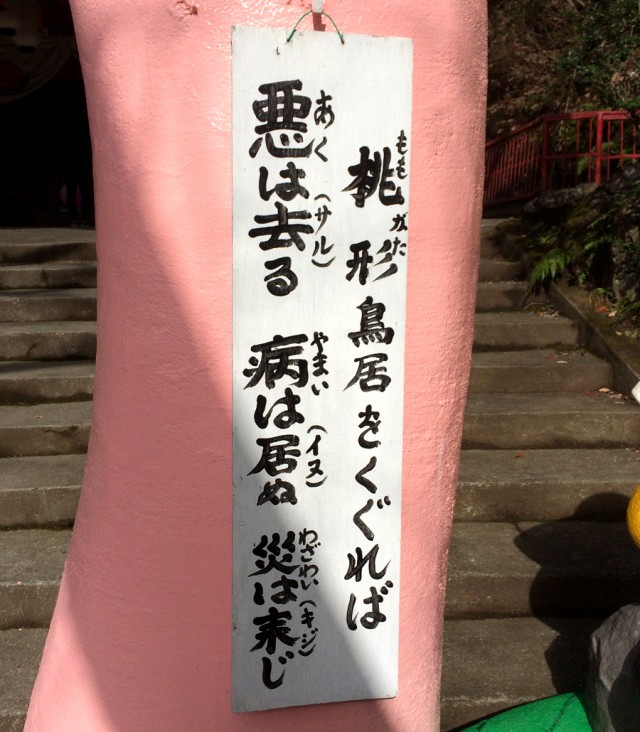 桃形鳥居をくぐれば
ももがた
悪は去る 病は居ぬ 災は来じ
あく (サル) やまい (イヌ) わざわい (キジ)